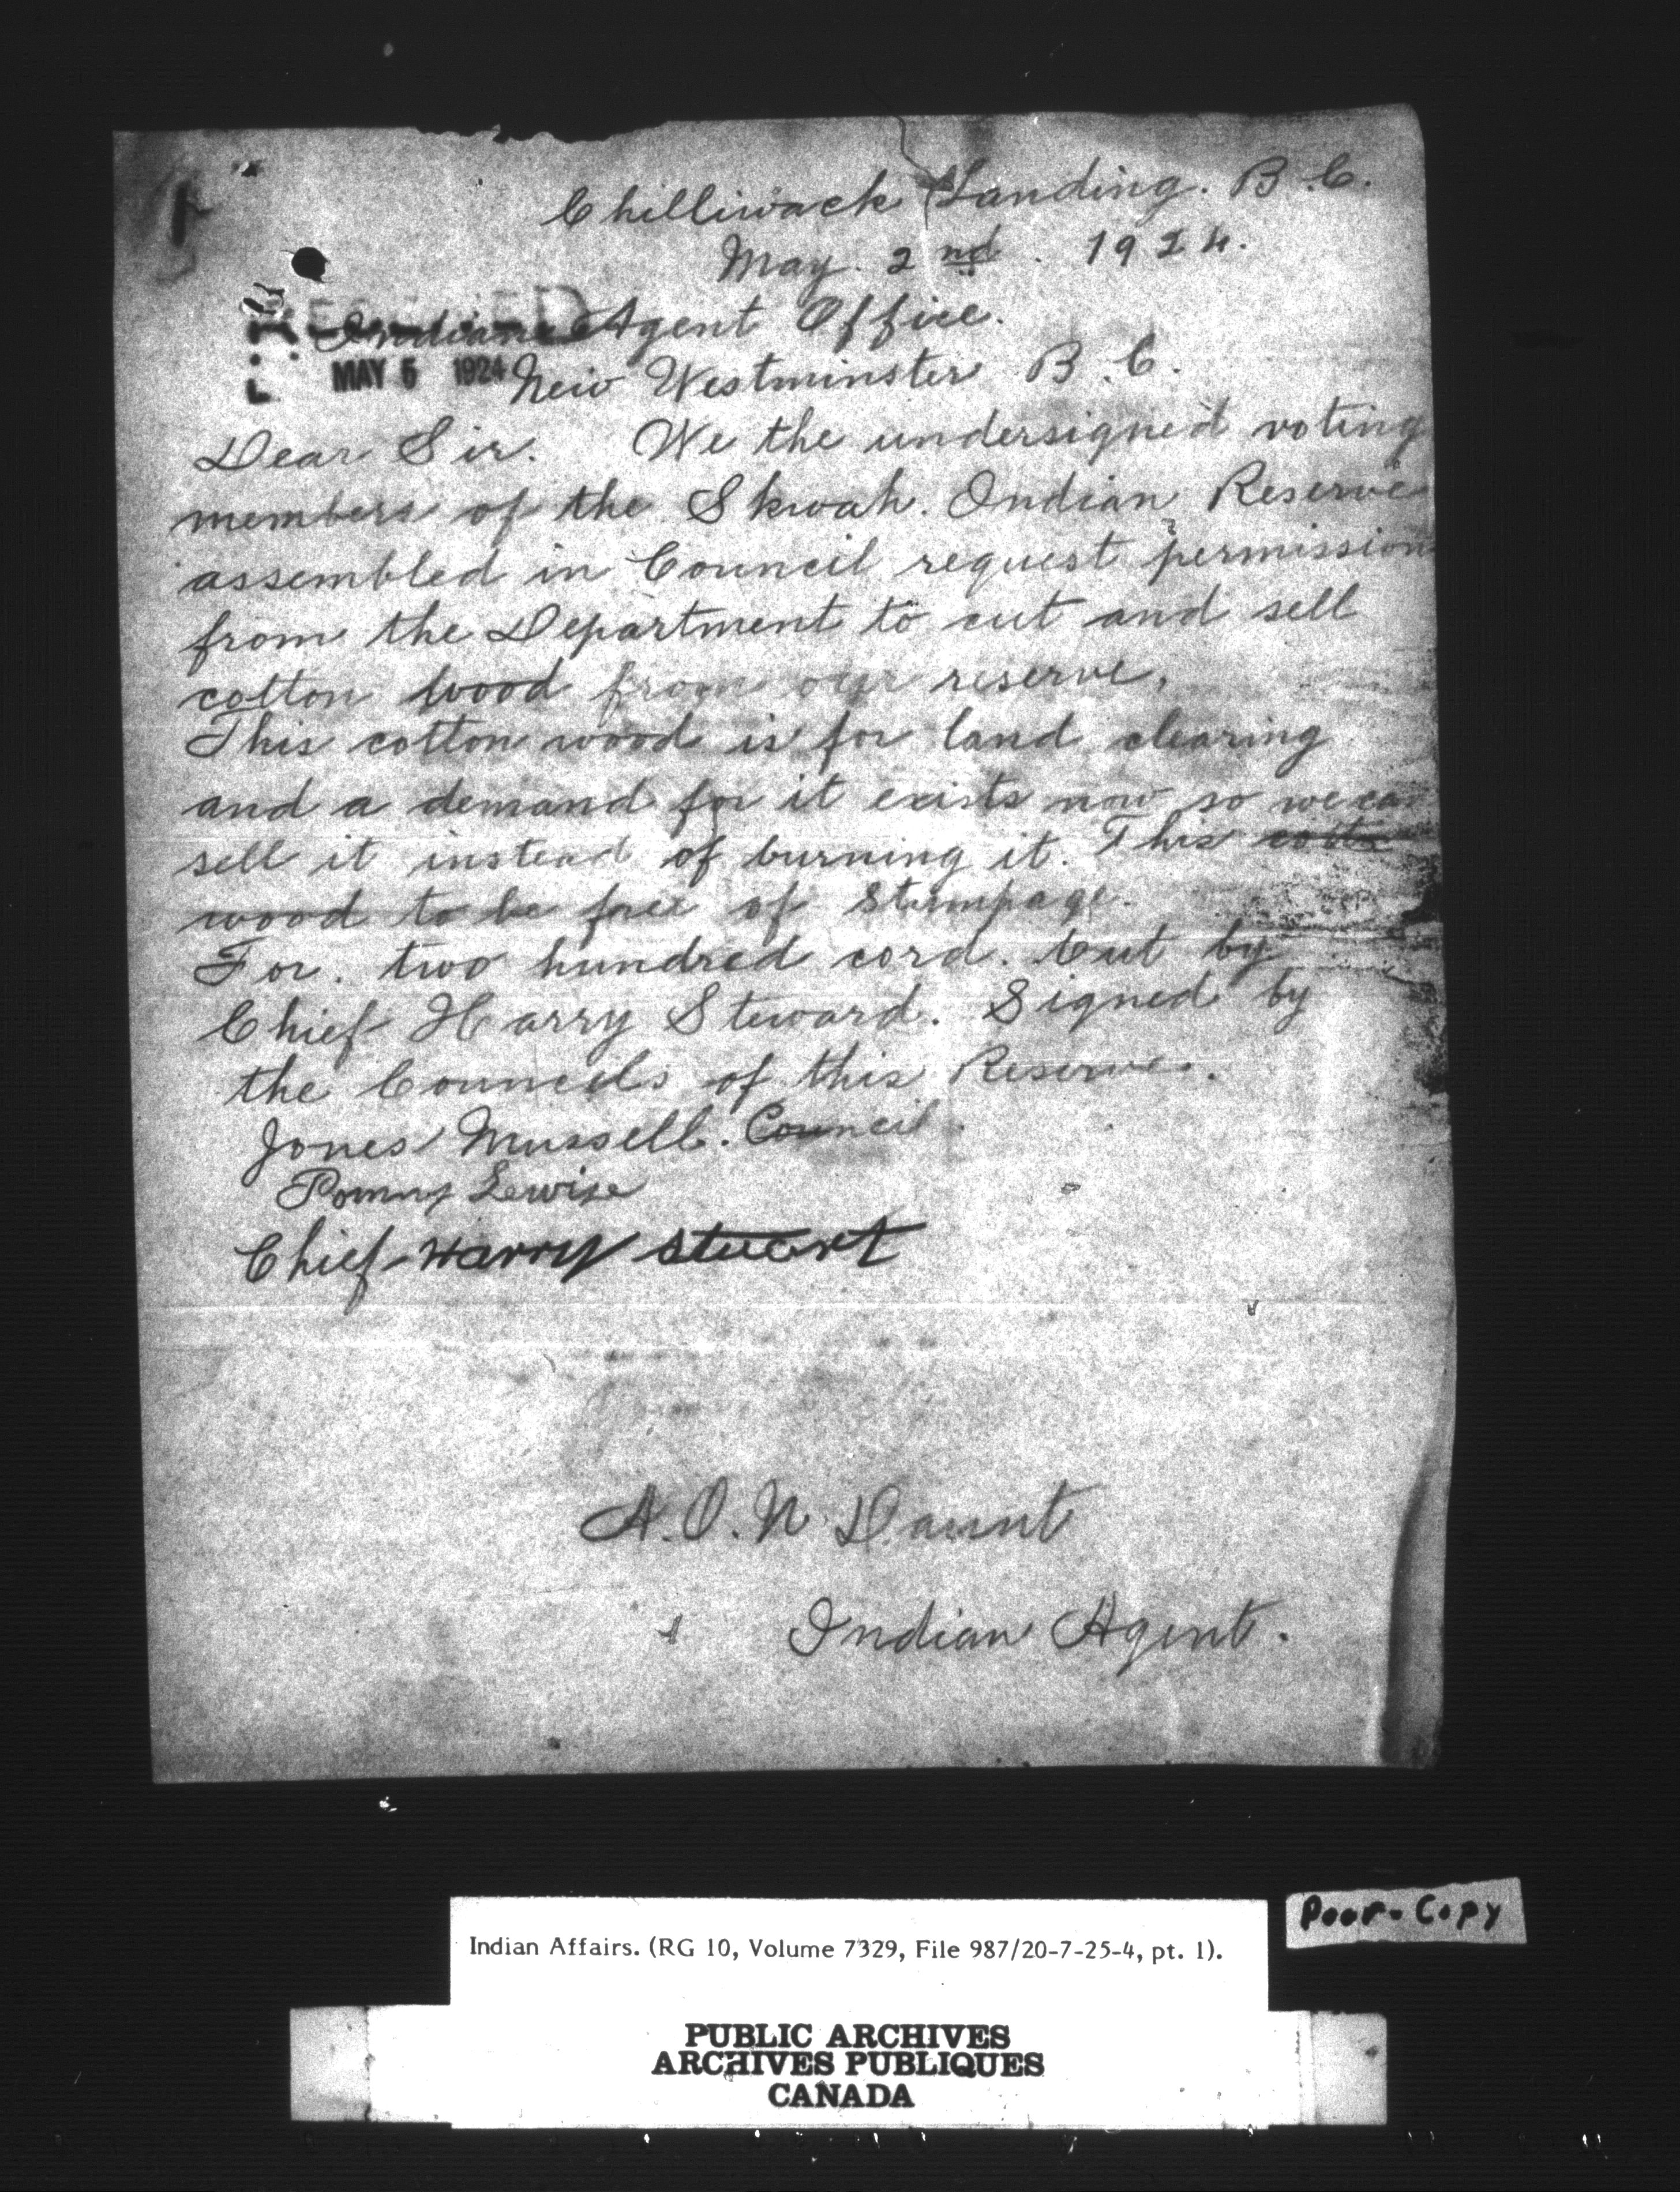 Chilliwack Landing. B.C.
May. 2nd. 1924.
RECEIVED
Indian Agent Office.
MAY 5 1924
New Westminster B.C.
Dear Sir. We the undersigned voting
members of the Skwah. Indian Reserve
assembled in Council request permission
from the Department to cut and sell
cotton wood from our reserve,
This cotton wood is for land clearing
and a demand for it exists now so we can
sell it instead of burning it. This cotton
wood to be free of Stumpage.
For. two hundred cord. Cut by
Chief Harry Steward. Signed by
the Councils of this Reserve.
Jones Mussell. Council.
Lewise
Chief Harry Stuart
A.O.N Daunt
Indian Agent.
Poor-Copy
Indian Affairs. (RG 10, Volume 7329, File 987/20-7-25-4, pt. 1).
PUBLIC ARCHIVES
ARCHIVES PUBLIQUES
CANADA